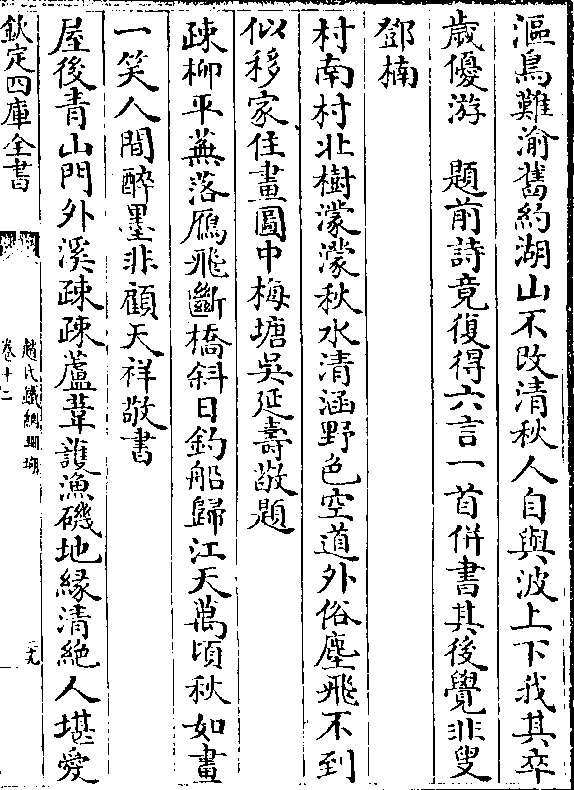 漚鳥難渝舊約湖山不改清秋人自與波上下我其卒
歲優游　題前詩竟復得六言一首併書其後覺非叟
鄧楠
村南村北樹濛濛秋水清涵野色空道外俗塵飛不到
似移家住畫圖中梅塘吳延壽敬題
疎柳平蕪落鴈飛斷橋斜日釣船歸江天萬頃秋如畫
一笑人間醉墨非顧天祥敬書
屋後青山門外溪疎疎蘆葦護漁磯地緣清絶人堪愛
欽定四庫全書
趙氏鐵網珊瑚
卷十二
二九